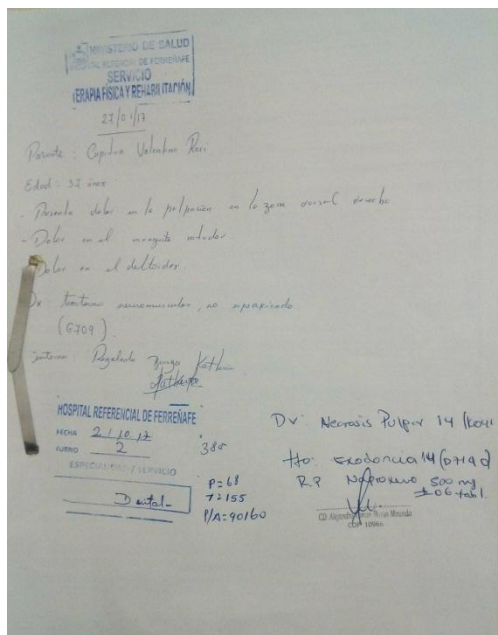 MINISTERIO DE SALUD
HOSPITAL REFERENCIAL DE FERREÑAFE
SERVICIO
TERAPIA FÍSICA Y REHABILITACIÓN
27/01/17
Paciente: Valentino
Edad: 32 años
- Presenta dolor en la palpación en la zona dorsal derecho
- Dolor en el manguito rotador
- Dolor en el deltoides.
Dx: trastorno neuromuscular, no especificado
(G709)
Interno: Regalado
HOSPITAL REFERENCIAL DE FERREÑAFE
FECHA 2/10/17
TURNO 2
ESPECIALIDAD / SERVICIO
Dental
P=68
T=155
P/A=90/60
Dx: Necrosis Pulpar 14
Tto: Exodoncia 14
R.P Naproxeno 500 mg
06 tabl.
CD. Miranda
COP 10966